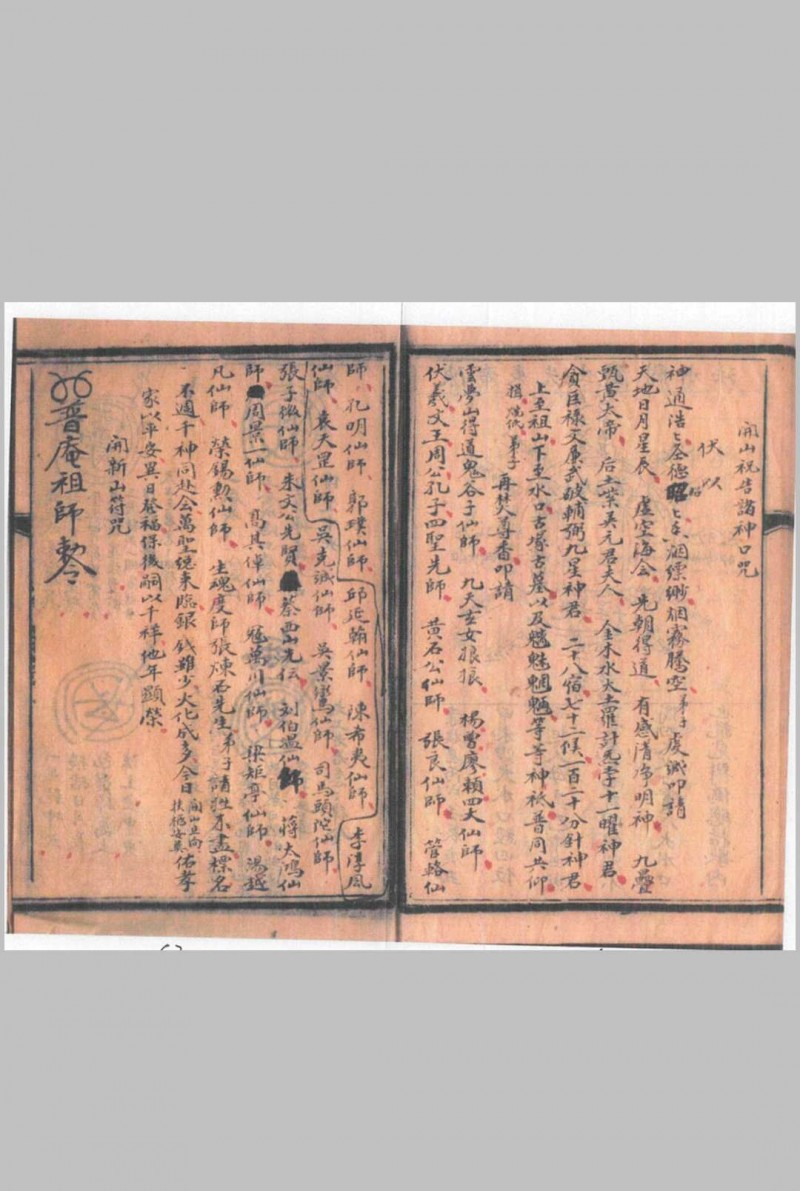 開山祝告諸神口咒
伏以
神通浩㇄圣德昭㇄香烟縹緲烟霧騰空弟子虔誠叩請
天地日月星辰 虛空海会 先朝得道 有感清净明神 九壘
甄黄大帝 后土紫英元君夫人 金木水火土羅計炁孛十一曜神君
貪巨祿文廉武破輔弼九星神君 二十八宿七十二候一百二十分針神君
上至祖山下至水口古塚古墓以及魑魅魍魎等等神祇普同共仰
弟子
再焚尊香叩請
雲夢山得道鬼谷子仙師 九天玄女娘娘 楊曾廖賴四大仙師
伏羲文王周公孔子四聖先師 黄石公仙師 張良仙師 管輅仙
師 孔明仙師 郭璞仙師 邱延翰仙師 陳布夷仙師 李淳风
仙師 袁天罡仙師 吳克誠仙師 吳景鸞仙師 司馬頭陀仙師
張子微仙師 朱文公先賢 蔡西山先伝 刘伯溫仙師 蔣大鴻仙
師 周景一仙師 高其倬仙師 冦萬川仙師 梁矩亭仙師 湯越
凡仙師 榮錫勳仙師 生魂度師張煉石先生弟子請姓不盡標名
不週千神同赴会萬聖總來臨銀錢雖少火化成多今日開山立向扶梔安葬佑孝
家以平安異日發福保後嗣以千祥他年顯榮
開新山符咒
普庵祖師敕令